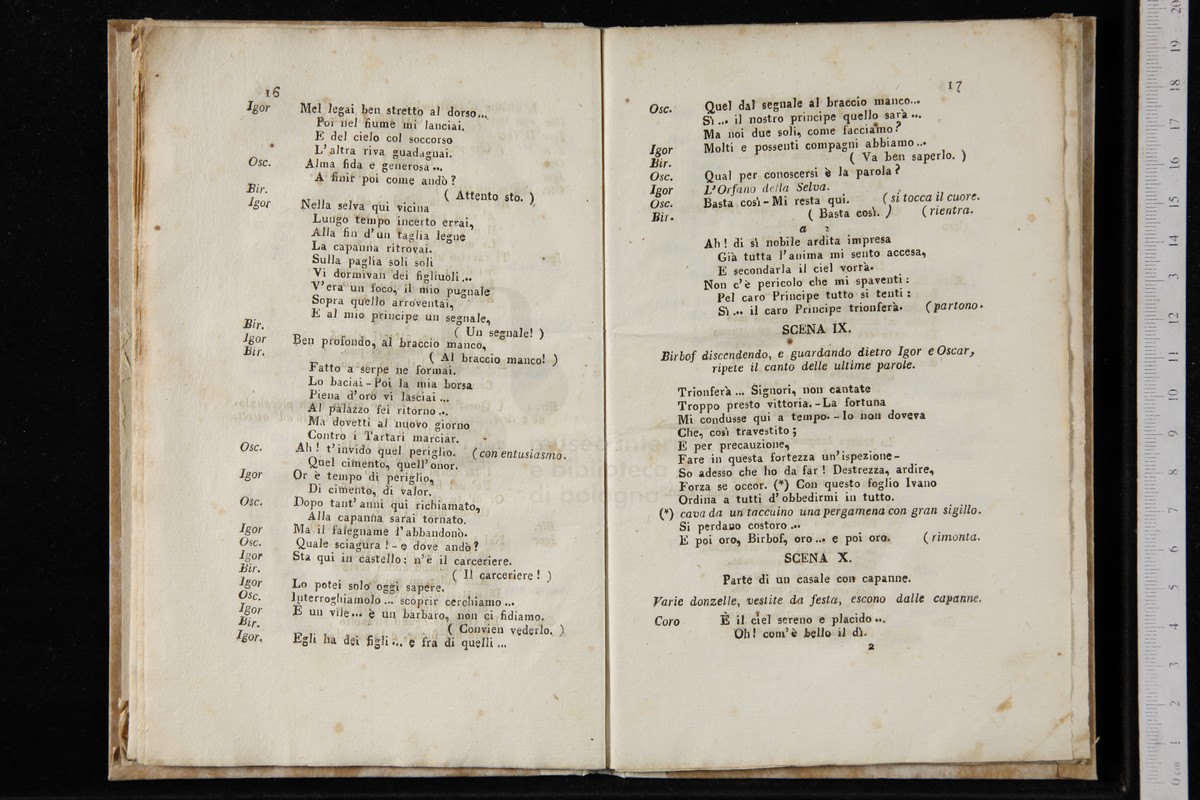 16
Igor Mel legai ben stretto al dorso...
Poi nel fiume mi lanciai.
E del cielo col soccorso
L'altra riva guadagnai.
Osc. Alma fida e generosa...
A finir poi come andò?
Bir. ( Attento sto. )
Igor Nella selva qui vicina
Lungo tempo incerto errai,
Alla fin d'un taglia legne
La capanna ritrovai.
Sulla paglia soli soli
Vi dormivan dei figliuoli...
V'era un foco, il mio pugnale
Sopra quello arroventai,
E al mio principe un segnale,
Bir. ( Un segnale! )
Igor Ben profondo, al braccio manco,
Bir. ( Al braccio manco! )
Fatto a serpe ne formai.
Lo baciai - Poi la mia borsa
Piena d'oro vi lasciai ...
Al palazzo fei ritorno...
Ma dovetti al nuovo giorno
Contro i Tartari marciar.
Osc. Ah! t'invido quel periglio. (con entusiasmo.
Quel cimento, quell'onor.
Igor Or è tempo di periglio,
Di cimento, di valor.
Osc. Dopo tant'anni qui richiamato,
Alla capanna sarai tornato.
Igor Ma il falegname l'abbandonò.
Osc. Quale sciagura! - e dove andò?
Igor Sta qui in castello: n'è il carceriere.
Bir. ( Il carceriere! )
Igor Lo potei solo oggi sapere.
Osc. Interroghiamolo ... scoprir cerchiamo ...
Igor E un vile... è un barbaro, non ci fidiamo.
Bir. ( Convien vederlo. )
Igor. Egli ha dei figli... e fra di quelli ...
17
Osc. Quel dal segnale al braccio manco...
Sì ... il nostro principe quello sarà ...
Ma noi due soli, come facciamo?
Igor Molti e possenti compagni abbiamo...
Bir. ( Va ben saperlo. )
Osc. Qual per conoscersi è la parola?
Igor L'Orfano della Selva.
Osc. Basta così - Mi resta qui. (si tocca il cuore.
Bir. ( Basta così. ) (rientra.
a 2
Ah! di sì nobile ardita impresa
Già tutta l'anima mi sento accesa,
E secondarla il ciel vorrà.
Non c'è pericolo che mi spaventi:
Pel caro Principe tutto si tenti:
Sì ... il caro Principe trionferà. (partono.
SCENA IX.
Birbof discendendo, e guardando dietro Igor e Oscar,
ripete il canto delle ultime parole.
Trionferà ... Signori, non cantate
Troppo presto vittoria. - La fortuna
Mi condusse qui a tempo. - Io non doveva
Che, così travestito;
E per precauzione,
Fare in questa fortezza un'ispezione -
So adesso che ho da far! Destrezza, ardire,
Forza se occor. (*) Con questo foglio Ivano
Ordina a tutti d'obbedirmi in tutto.
(*) cava da un taccuino una pergamena con gran sigillo.
Si perdano costoro ...
E poi oro, Birbof, oro ... e poi oro. (rimonta.
SCENA X.
Parte di un casale con capanne.
Varie donzelle, vestite da festa, escono dalle capanne.
Coro È il ciel sereno e placido...
Oh! com'è bello il dì.
2
museo inter
e biblioteca
di bologna
20
19
18
17
16
15
14
13
12
11
10
9
8
7
6
5
4
3
2
1
0 cm